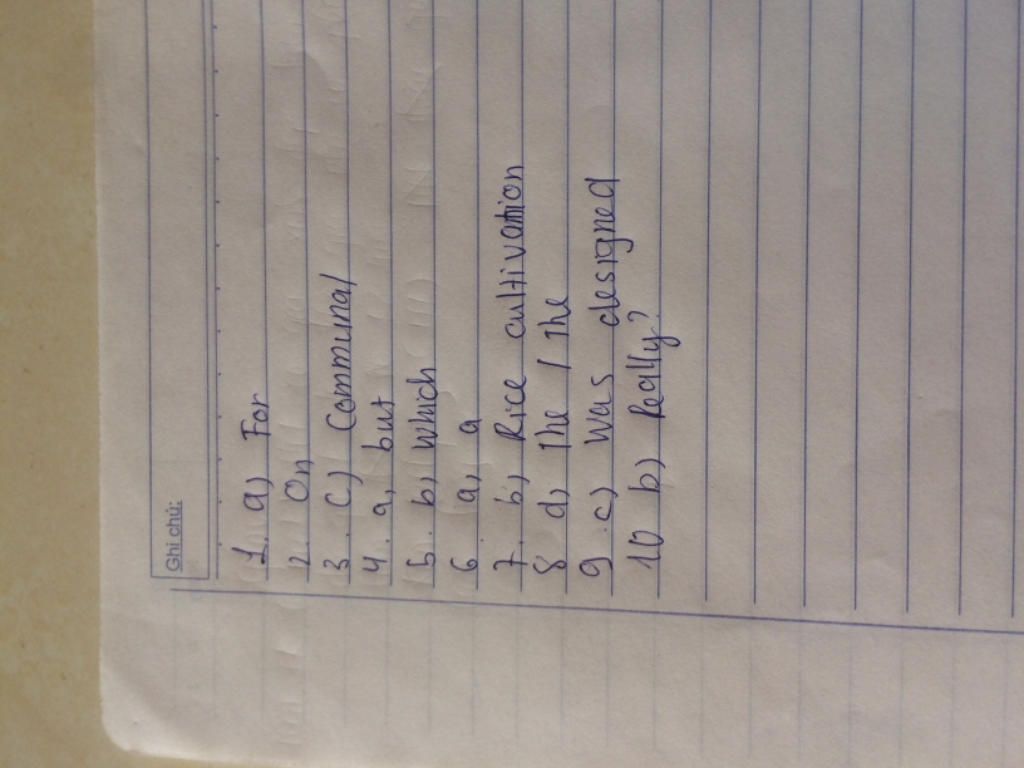 Ghi chú:
1. a) For
2. On
3. c) Communal
4. a, but
5. b) which
6. a, a
7. b, Rice cultivation
8 d, the / the
9. c) was designed
10 b) Really?